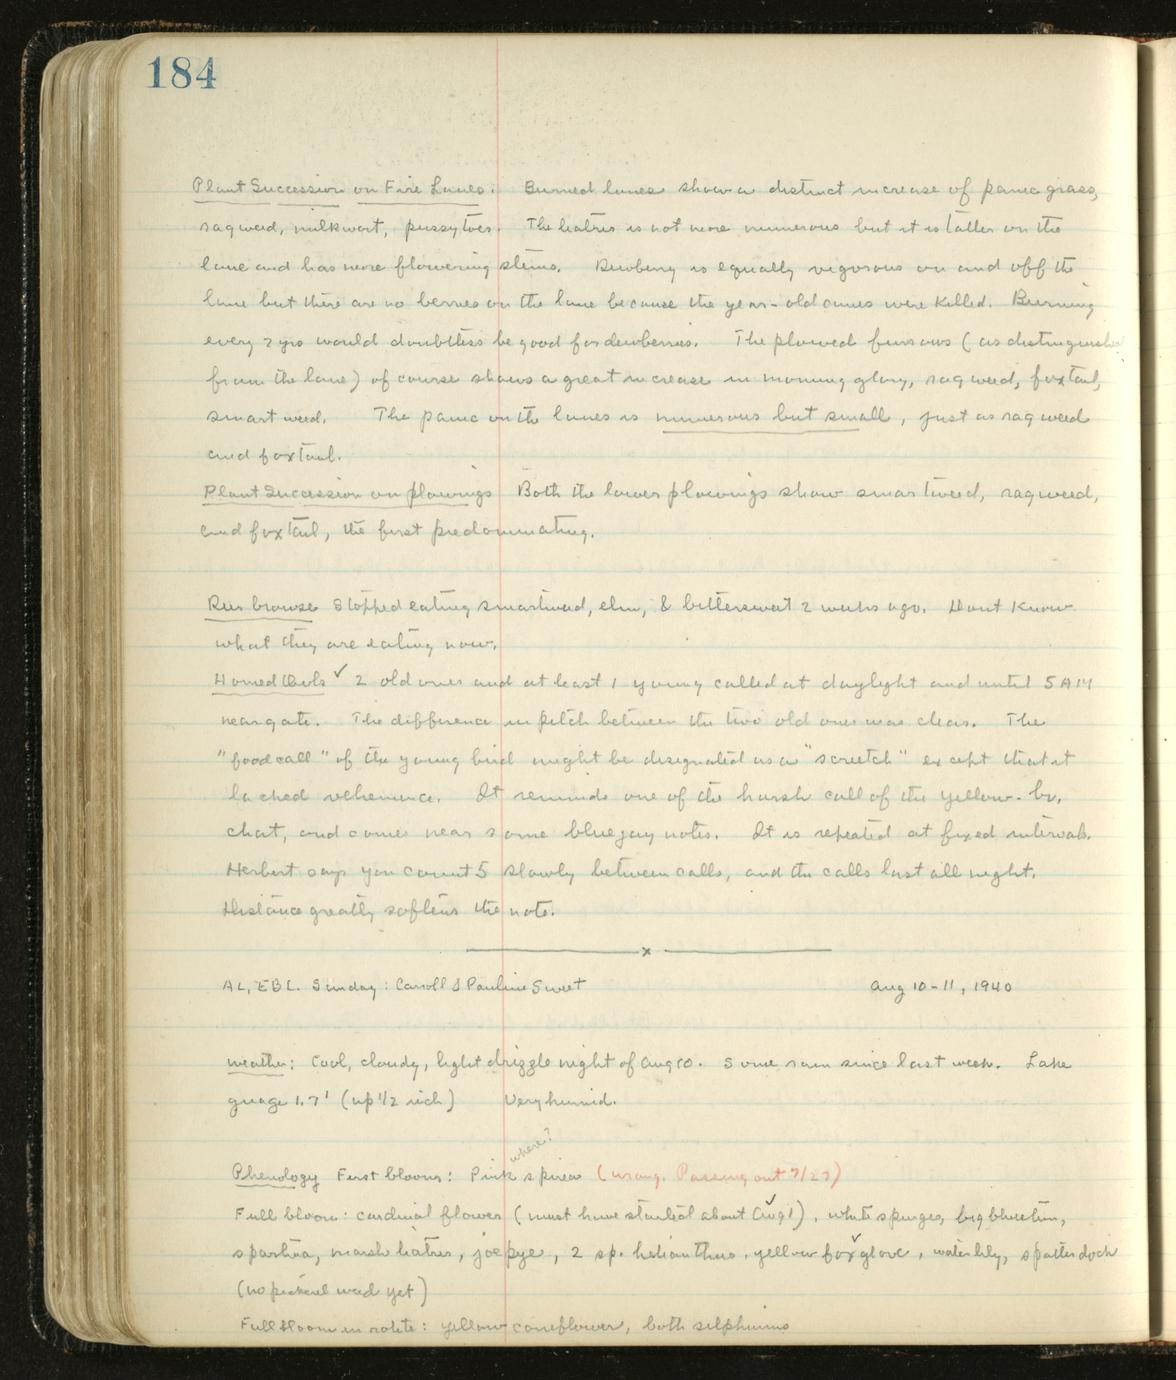 184
Plant Succession on Fire Lanes: Burned lanes show a distinct increase of panic grass,
ragweed, milkwort, pussytoes. The liatris is not more numerous but it is taller on the
lane and has more flowering stems. Dewberry is equally vigorous on and off the
lane but there are no berries on the lane because the year-old canes were killed. Burning
every 2 yrs would doubtless be good for dewberries. The plowed furrows (as distinguished
from the lane) of course shows a great increase in morning glory, ragweed, foxtail,
smartweed. The panic on the lanes is numerous but small, just as ragweed
and foxtail.
Plant Succession on plowings Both the lower plowings show smartweed, ragweed,
and foxtail, the first predominating.
Deer browse Stopped eating smartweed, elm, & bittersweet 2 weeks ago. Dont know
what they are eating now.
Horned Owls ✓ 2 old ones and at least 1 young called at daylight and until 5 AM
near gate. The difference in pitch between the two old ones was clear. The
"food call" of the young bird might be designated as a "screetch" except that it
lacked vehemence. It reminds one of the harsh call of the yellow-br.
chat, and comes near some bluejay notes. It is repeated at fixed intervals.
Herbert says you count 5 slowly between calls, and the calls last all night.
Distance greatly softens the note.
x
AL, EBL. Sunday: Carroll & Pauline Sweet Aug 10-11, 1940
Weather: Cool, cloudy, light drizzle night of Aug 10. Some rain since last week. Lake
guage 1.7' (up 1/2 inch) Very humid.
where?
Phenology First bloom: Pink spirea (wrong. Passing out 7/27)
Full bloom: cardinal flower (must have started about Aug 1) ✓, white spurge, big bluestem,
spartina, marsh liatris, joepye, 2 sp. helianthus, yellow foxglove ✓, waterlily, spatterdock
(no pickerel weed yet)
Full bloom en route: yellow coneflower, both silphiums